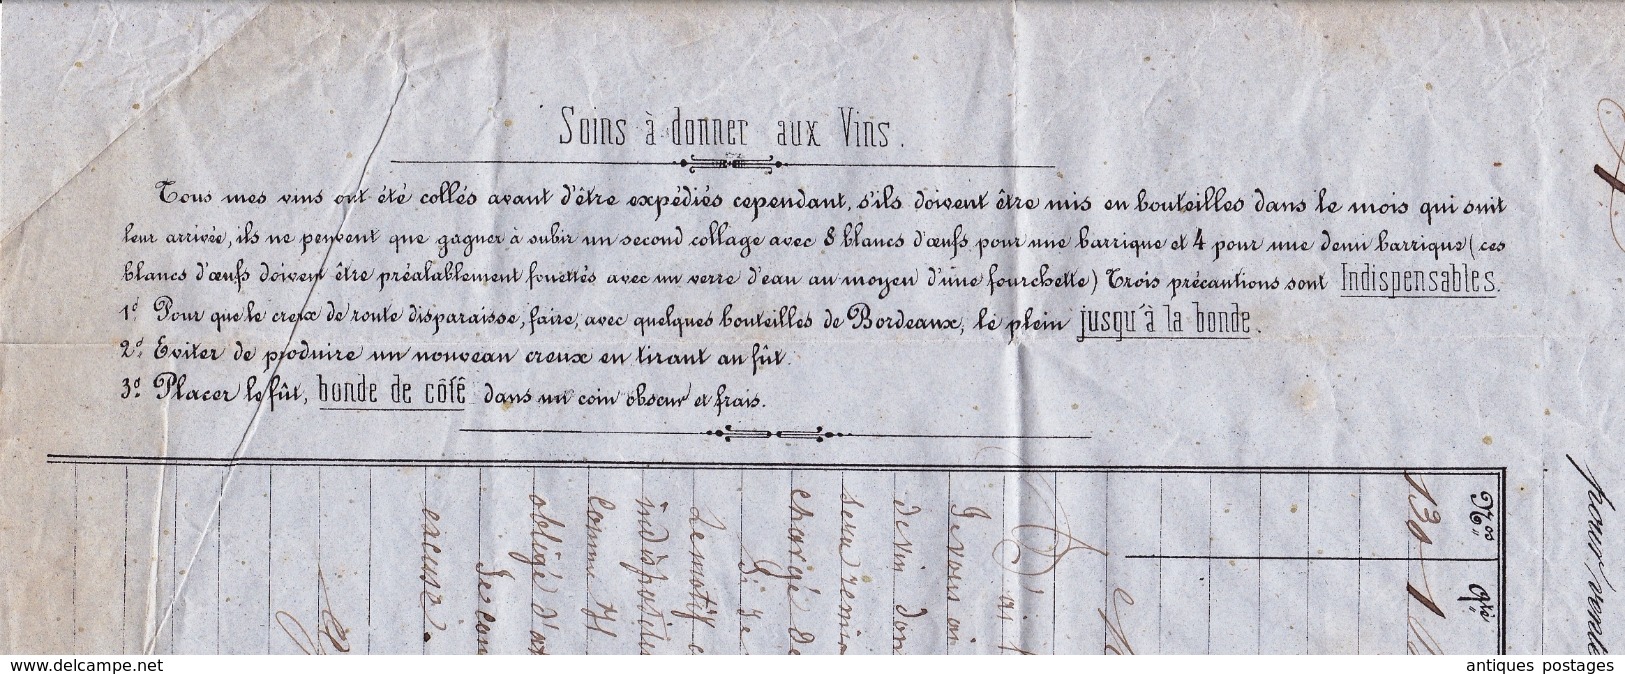 Soins à donner aux Vins.
Tous mes vins ont été collés avant d'être expédiés cependant, s'ils doivent être mis en bouteilles dans le mois qui suit
leur arrivée, ils ne peuvent que gagner à subir un second collage avec 8 blancs d'œufs pour une barrique et 4 pour une demi barrique (ces
blancs d'œufs doivent être préalablement fouettés avec un verre d'eau au moyen d'une fourchette) Trois précautions sont Indispensables.
1º Pour que le creux de route disparaisse, faire, avec quelques bouteilles de Bordeaux, le plein jusqu'à la bonde.
2º. Eviter de produire un nouveau creux en tirant au fût.
3º Placer le fût, bonde de côté dans un coin obscur et frais.
Nos.
Qté
130 1
Je vous ai
de vin don
sera remi
chargé de
Si je
le motif
indispositi
comme
obligé d'at
Je con
excuse.
pour vente
delcampe.net
antiques postages